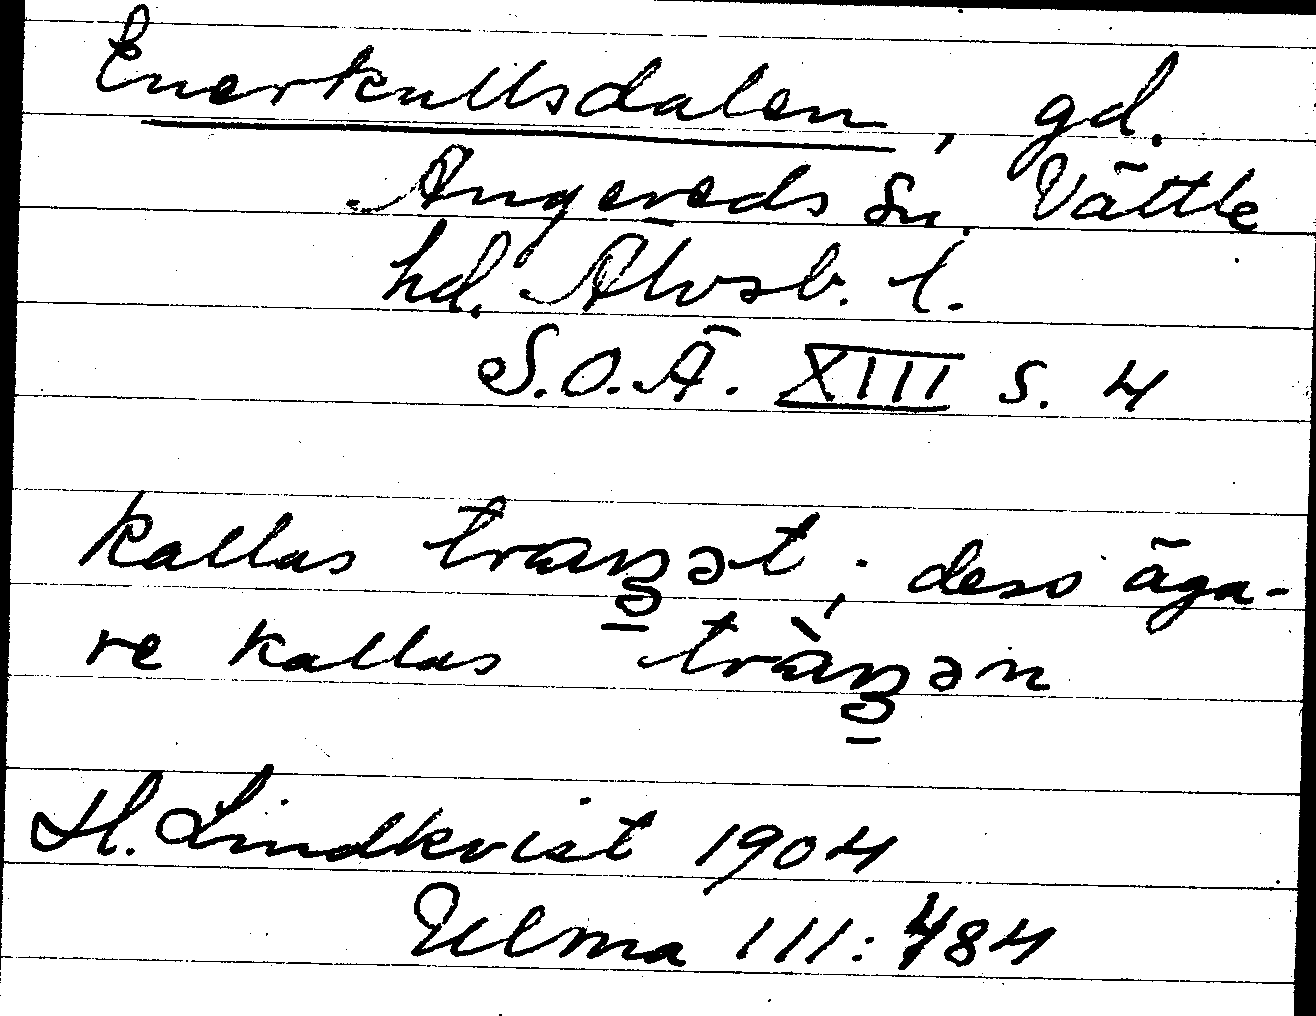 Enerkullsdalen, gd.
Angereds sn. Vättle
hd. Älvsb. l.
S.O.Ä. XIII s. 4
kallas traŋət; dess äga-
re kallas tràŋən
H. Lindkvist 1904
Ulma III: 484